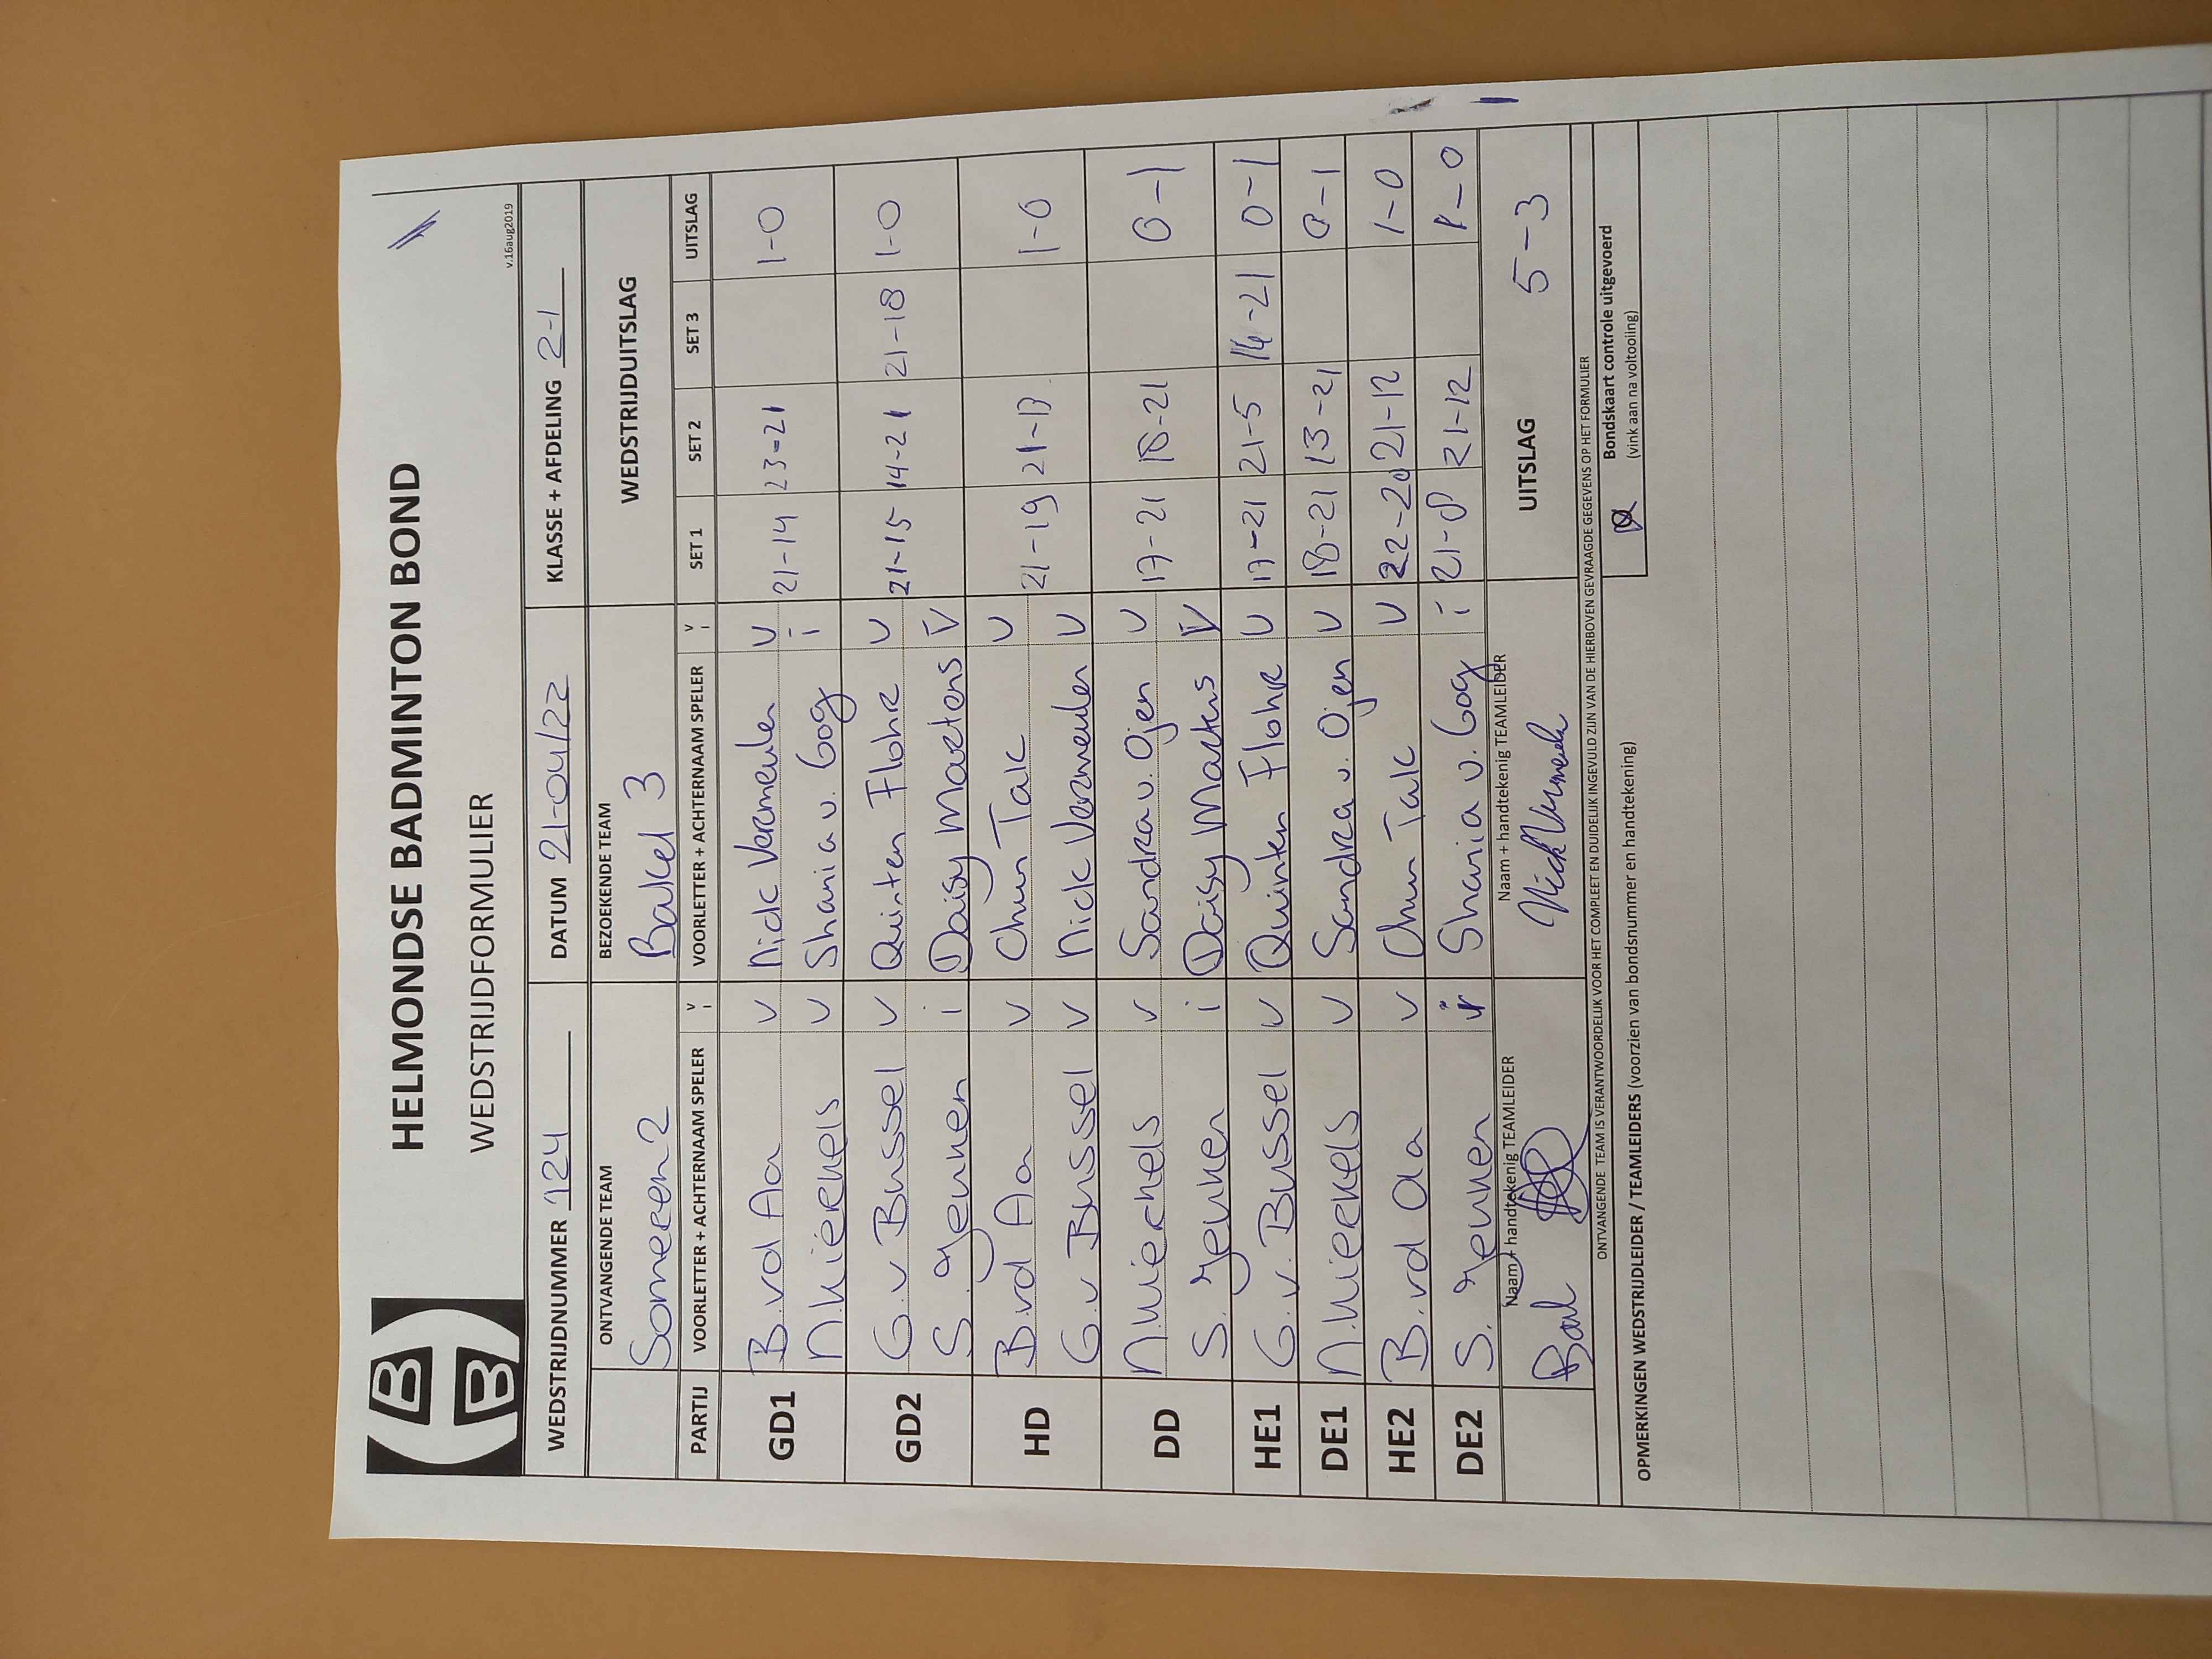 HELMONDSE BADMINTON BOND
WEDSTRIJDFORMULIER
v.16aug2019
WEDSTRIJDNUMMER 124 DATUM 21-04/22 KLASSE + AFDELING 2-1
ONTVANGENDE TEAM BEZOEKENDE TEAM WEDSTRIJDUITSLAG
Someren 2 Bakel 3
PARTIJ VOORLETTER + ACHTERNAAM SPELER V I VOORLETTER + ACHTERNAAM SPELER V I SET 1 SET 2 SET 3 UITSLAG
GD1 B.vd Aa v Nick Vermeulen v 21-14 23-21 1-0
N.Mierkels v Shania v. Gog i
GD2 G.v Bussel v Quinten Flohr v 21-15 14-21 21-18 1-0
S. Yeunen i Daisy Maxtens V
HD B.vd Aa v Chun Talc v 21-19 21-13 1-0
G.v Bussel v Nick Vermeulen v
DD N.Mierkels v Sandra v. Ojen v 17-21 18-21 0-1
S. Yeunen i Daisy Martens V
HE1 G.v. Bussel v Quinten Flohr v 17-21 21-5 14-21 0-1
DE1 N.Mierkels v Sandra v. Ojen v 18-21 13-21 0-1
HE2 B.vd Aa v Chun Talc v 22-20 21-12 1-0
DE2 S. Yeunen Shania v. Gog i 21-8 21-12 1-0
Naam + handtekenig TEAMLEIDER Naam + handtekenig TEAMLEIDER UITSLAG 5-3
Nick Vermeulen
ONTVANGENDE TEAM IS VERANTWOORDELIJK VOOR HET COMPLEET EN DUIDELIJK INGEVULD ZIJN VAN DE HIERBOVEN GEVRAAGDE GEGEVENS OP HET FORMULIER
Bondskaart controle uitgevoerd
(vink aan na voltooiing)
OPMERKINGEN WEDSTRIJDLEIDER / TEAMLEIDERS (voorzien van bondsnummer en handtekening)